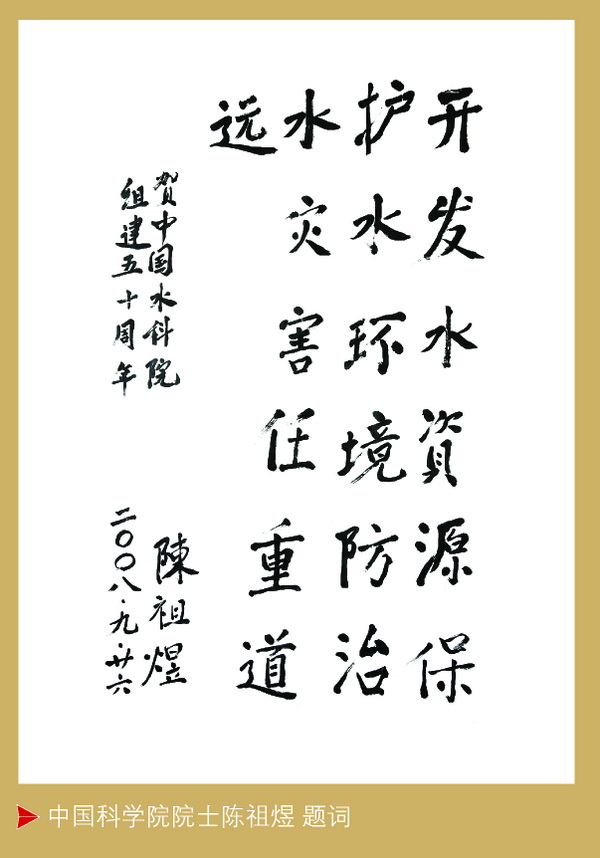 开发水資源保
护水环境防治
水灾害任重道
远
贺中国水科院
组建五十周年
陳祖煜
二〇〇八.九.廿六
中国科学院院士陈祖煜 题词